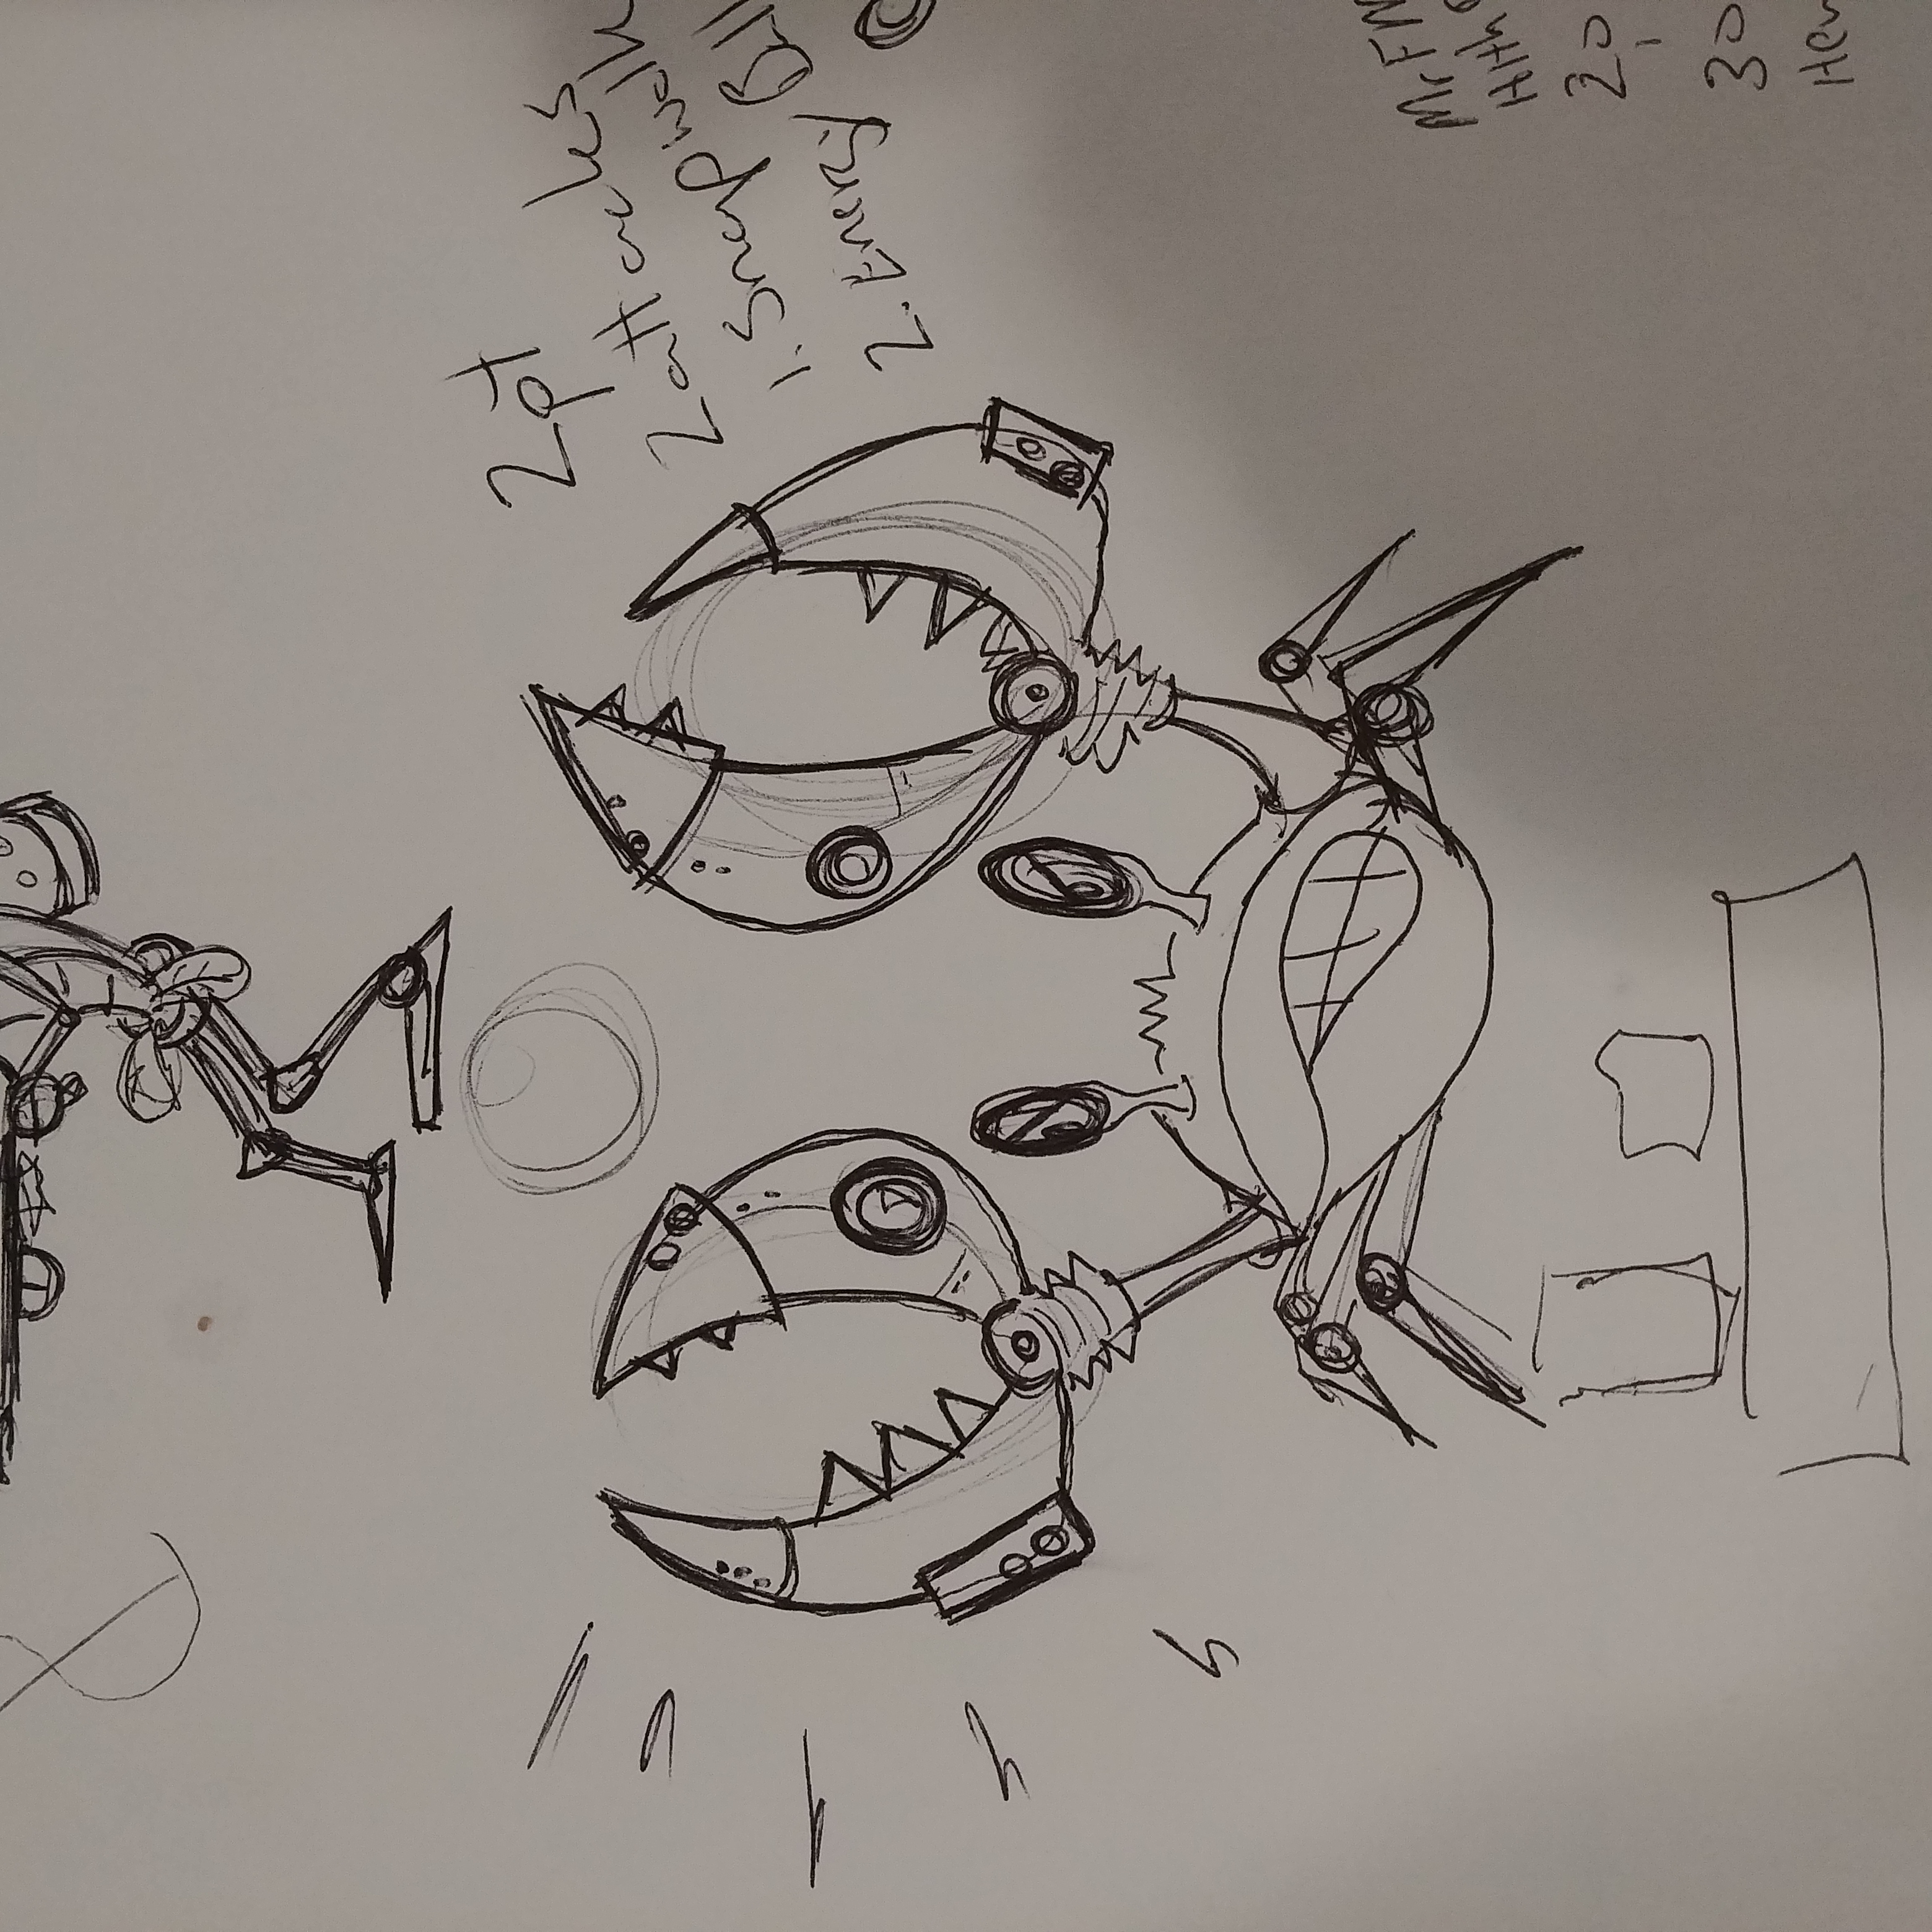 2pt
2 attacks
1. Snap walk
2. Energy Ball
Mr
Hlth
20
30